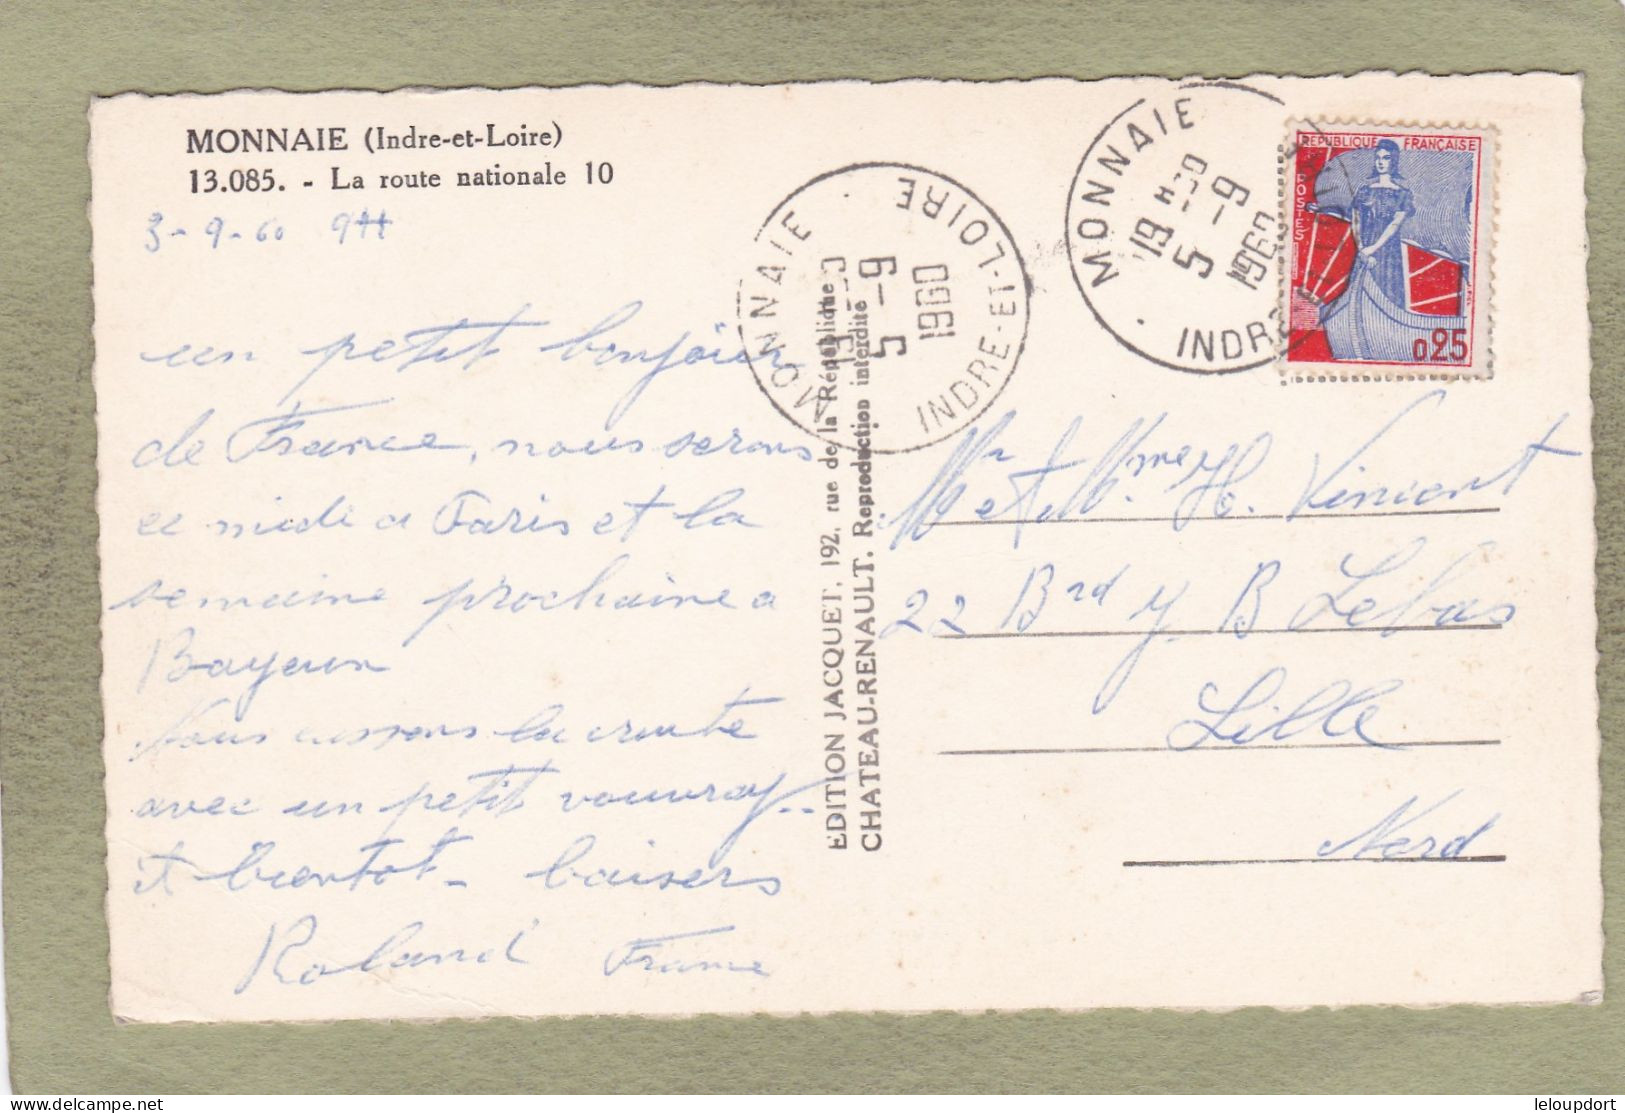 MONNAIE (Indre-et-Loire)
13.085. - La route nationale 10
3-9-60 9H
un petit bonjour
de France, nous serons
ce midi a Paris et la
semaine prochaine a
Nous cassons la croute
avec un petit vouvray..
et bientot - baisers
Roland France
EDITION JACQUET, 192, rue de la République
CHATEAU-RENAULT. Reproduction interdite
MONNAIE
5-9
1960
INDRE-ET-LOIRE
MONNAIE
19H30
5-9
1960
INDRE
REPUBLIQUE FRANÇAISE
POSTES
0,25
Mr et Mme H. Vincent
22 Brd J B Lebas
Lille
Nord
leloupdort